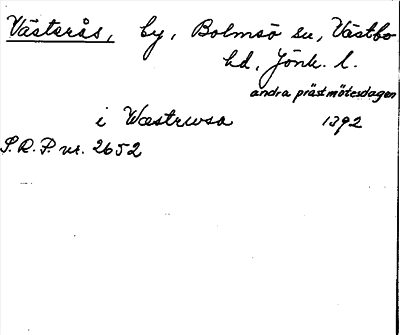 Västerås, by, Bolmsö sn, Västbo
hd, Jönk. l.
andra prästmötesdagen
i Wæstrwsa 1392
S.R.P. nr. 2652